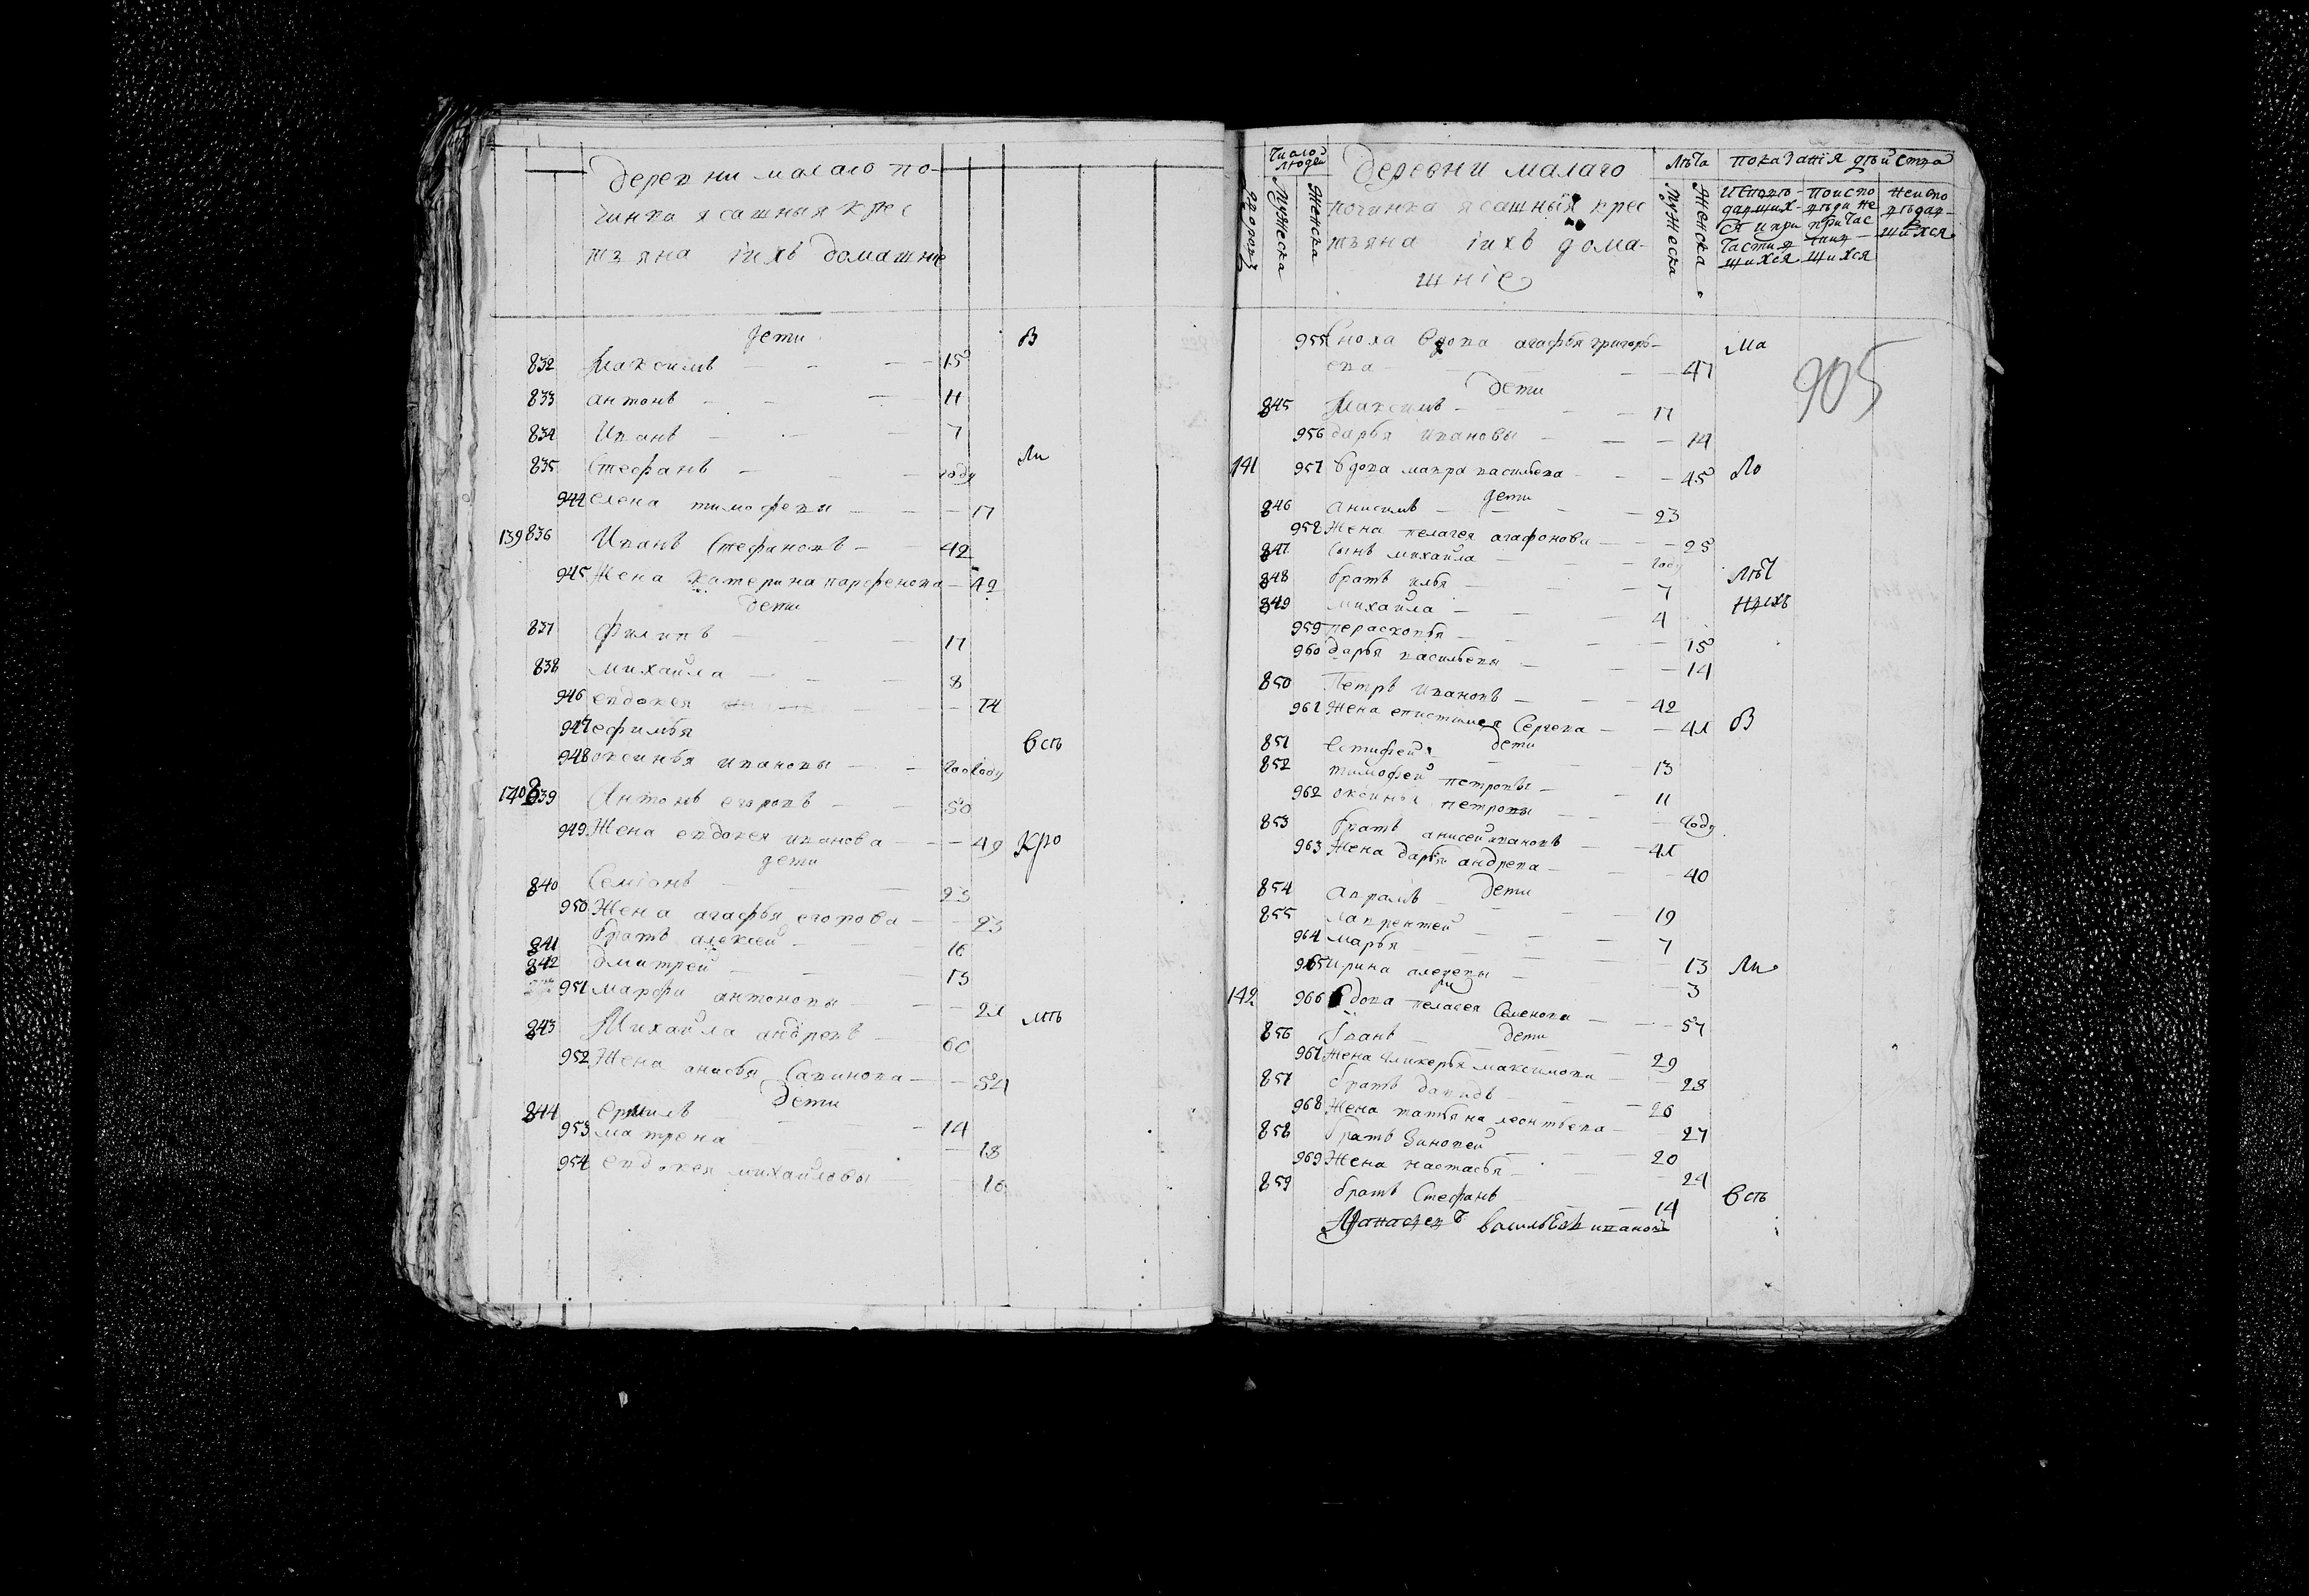 деревни малаго по-
чинка ясашныя крес
тьяна iихъ домашнiе
дети
В
832 Максимъ 15
833 антонъ 11
834 Иванъ 7
Ли
835 Стефанъ году
944 елена тимофевы 17
139 836 Иванъ Стефановъ 42
945 Жена Катерина парфенова 42
дети
837 Филипъ 17
838 михайла 8
946 евдокея 14
947 ефимья
всѣ
948 оксинья ивановы году
140 839 Антонъ егоровъ 50
949 Жена евдокея иванова 49 Кро
дети
840 Семiонъ 23
950 Жена агафья егорова 23
841 братъ алексей 16
842 дмитрей 13
951 марфа антоновы 21
мѣ
843 Михайла андревъ 60
952 Жена анисья Савинова 54
дети
844 ермилъ 14
953 матрена 18
954 евдокея михайловы 16
число людей
деревни малаго
лѣта
показанiя дѣйства
дворовъ
мужеска
женска
починка ясашныя крес
тьяна iихъ дома-
шнiе
мужеска
женска
исповѣ-
давших-
ся и при
частив
шихся
поиспо
вѣди не
причас
тив-
шихся
неиспо
вѣдав-
шихся
905
955 Сноха вдова агафья григорь-
ева 47
Ма
дети
845 Максимъ 17
956 дарья ивановы 14
141 957 вдова мавра васильева 45 Ло
дети
846 анисимъ 23
958 Жена пелагея агафонова 25
847 сынъ михайла году
848 братъ илья 7 лѣт
849 михайла 4 нихъ
959 перасковья 15
960 дарья васильевы 14
850 Петръ ивановъ 42
961 Жена епистимея Сергева 41 В
дети
851 Естифей 13
852 тимофей петровы 11
962 оксинья петровы году
853 братъ анисей ивановъ 41
963 Жена дарья андрева 40
дети
854 аврамъ 19
855 лаврентей 7
964 марья 13 Ли
965 ирина 3
142 966 вдова пелагея Семенова 57
дети
856 Iванъ 29
967 Жена гликерья максимова 28
857 братъ давидъ 26
968 Жена татьяна леонтьева 27
858 братъ Зиновей 20
969 Жена настасья 24
859 братъ Стефанъ 14
всѣ
васильевъ ивановъ